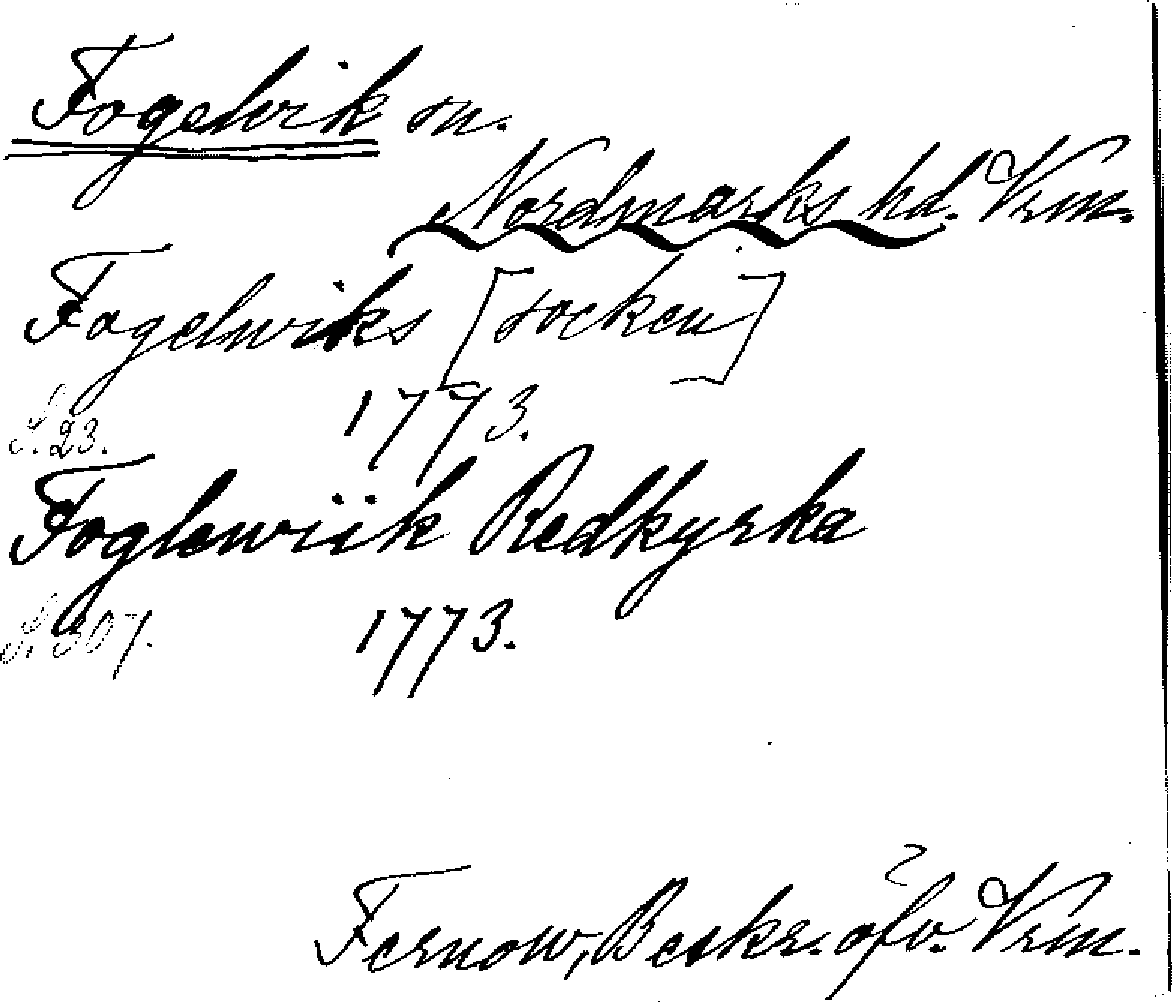 Fogelvik sn.
Nordmarks hd. Vrm.
Fogelwiks [socken]
S. 23. 1773.
Foglewiik Redkyrka
S. 307. 1773.
Fernow, Beskr. öfv. Vrm.